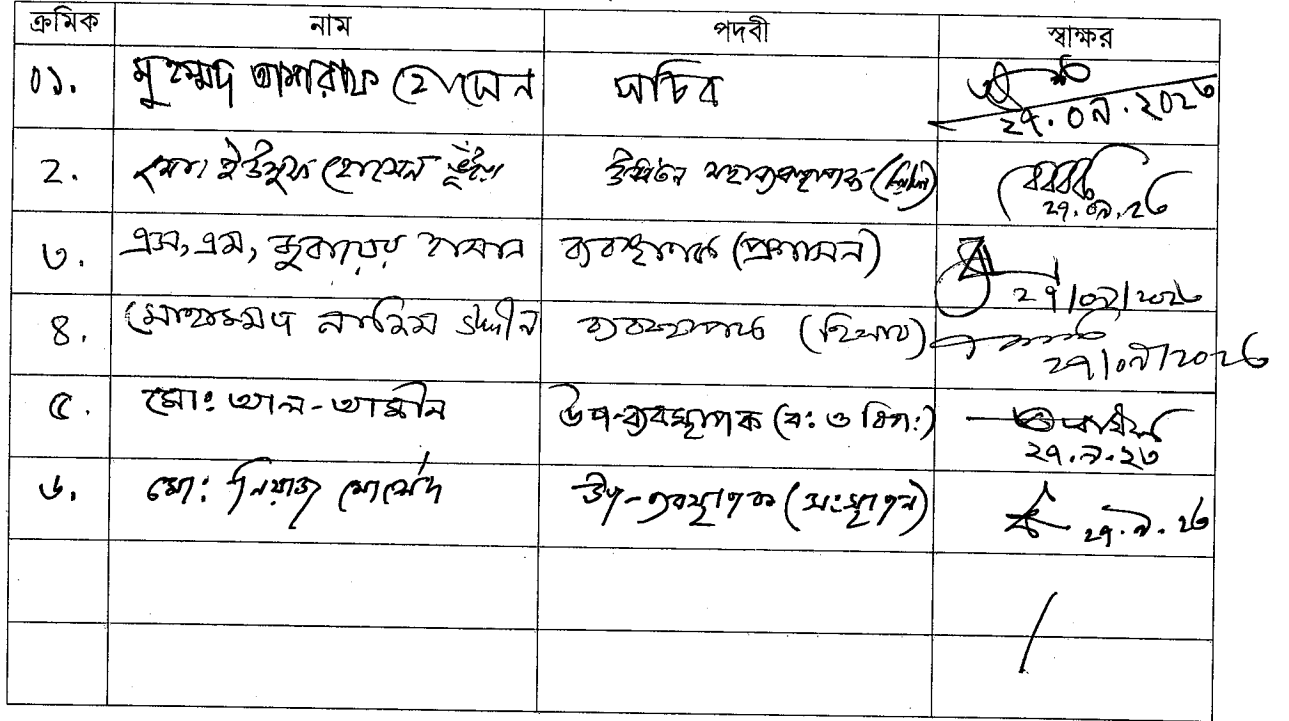 ক্রমিক নাম পদবী স্বাক্ষর
০১. মুহম্মদ আশরাফ হোসেন সচিব ২৭.০৯.২০২৩
২. মোঃ ইউসুফ হোসেন ভূঁইয়া মহাব্যবস্থাপক ২৭.০৯.২৩
৩. এস, এম, জুবায়ের হাসান ব্যবস্থাপক (প্রশাসন) ২৭/০৯/২০২৩
৪. মোহাম্মদ নাসিম উদ্দীন ব্যবস্থাপক (হিসাব) ২৭/০৯/২০২৩
৫. মোঃ আল-আমীন উপ-ব্যবস্থাপক (বঃ ও বিপঃ) ২৭.৯.২৩
৬. মোঃ নিয়াজ মোর্শেদ উপ-ব্যবস্থাপক (সংস্থাপন) ২৭.৯.২৩